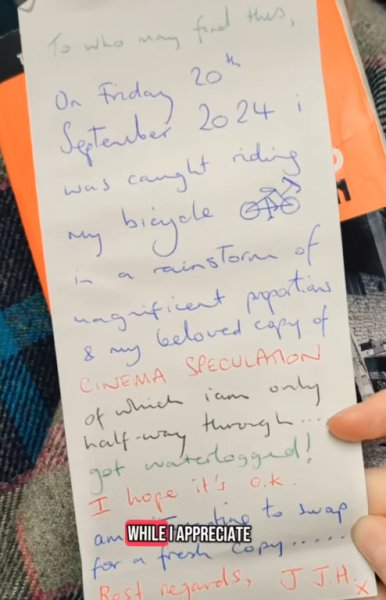 To who may find this,
On Friday 20th
September 2024 i
was caught riding
my bicycle
in a rainstorm of
magnificent proportions
& my beloved copy of
CINEMA SPECULATION
of which i am only
half-way through...
got waterlogged!
I hope it's O.K.
am to swap
WHILE I APPRECIATE
for a fresh copy.....
Best regards, J.J.H. x